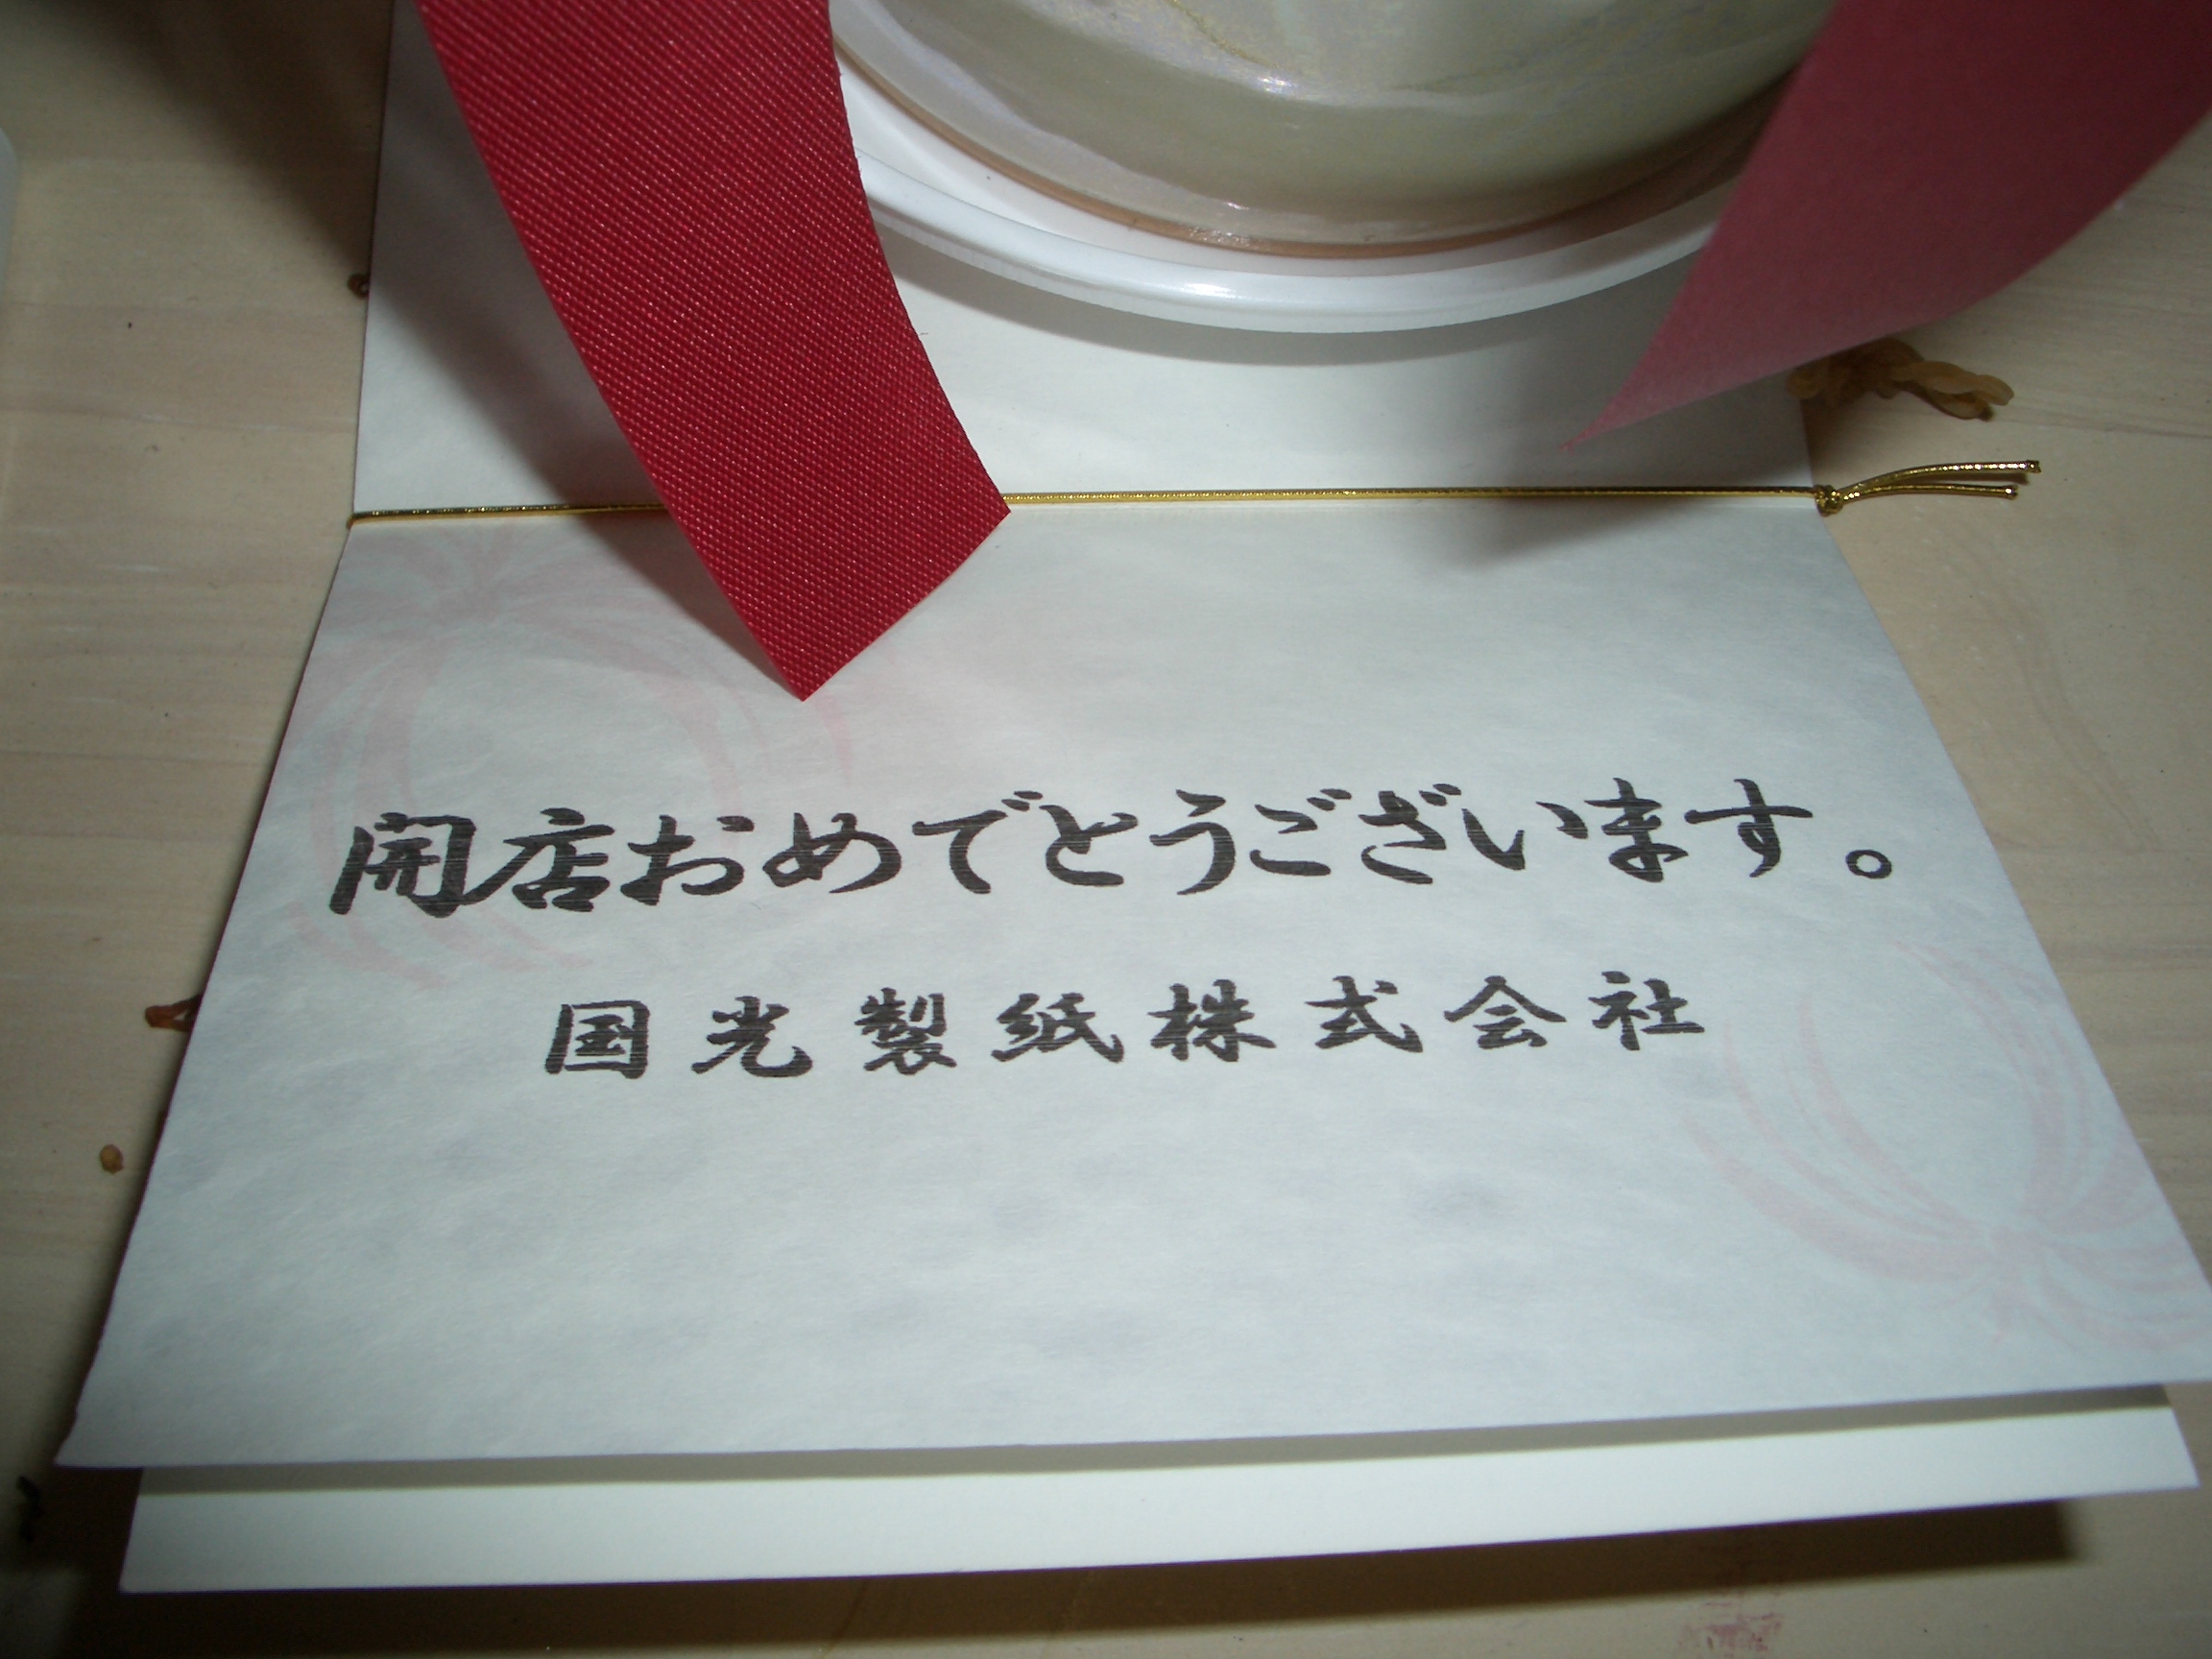 開店おめでとうございます。
国光製紙株式会社